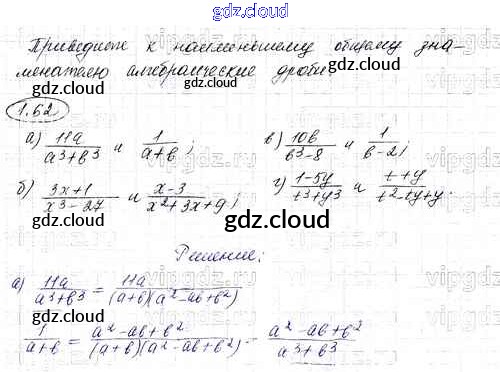 gdz.cloud
Приведите к наименьшему общему зна-
менателю алгебраические дроби
gdz.cloud gdz.cloud
1.62
а) 11a/(a³+b³) и 1/(a+b); в) 10b/(b³-8) и 1/(b-2);
б) (3x+1)/(x³-27) и (x-3)/(x²+3x+9); г) (1-5y)/(t³+y³) и (t+y)/(t²-ty+y.
gdz.cloud
Решение:
а) 11a/(a³+b³) = 11a/((a+b)(a²-ab+b²))
1/(a+b) = (a²-ab+b²)/((a+b)(a²-ab+b²)) - (a²-ab+b²)/(a³+b³)
gdz.cloud gdz.cloud